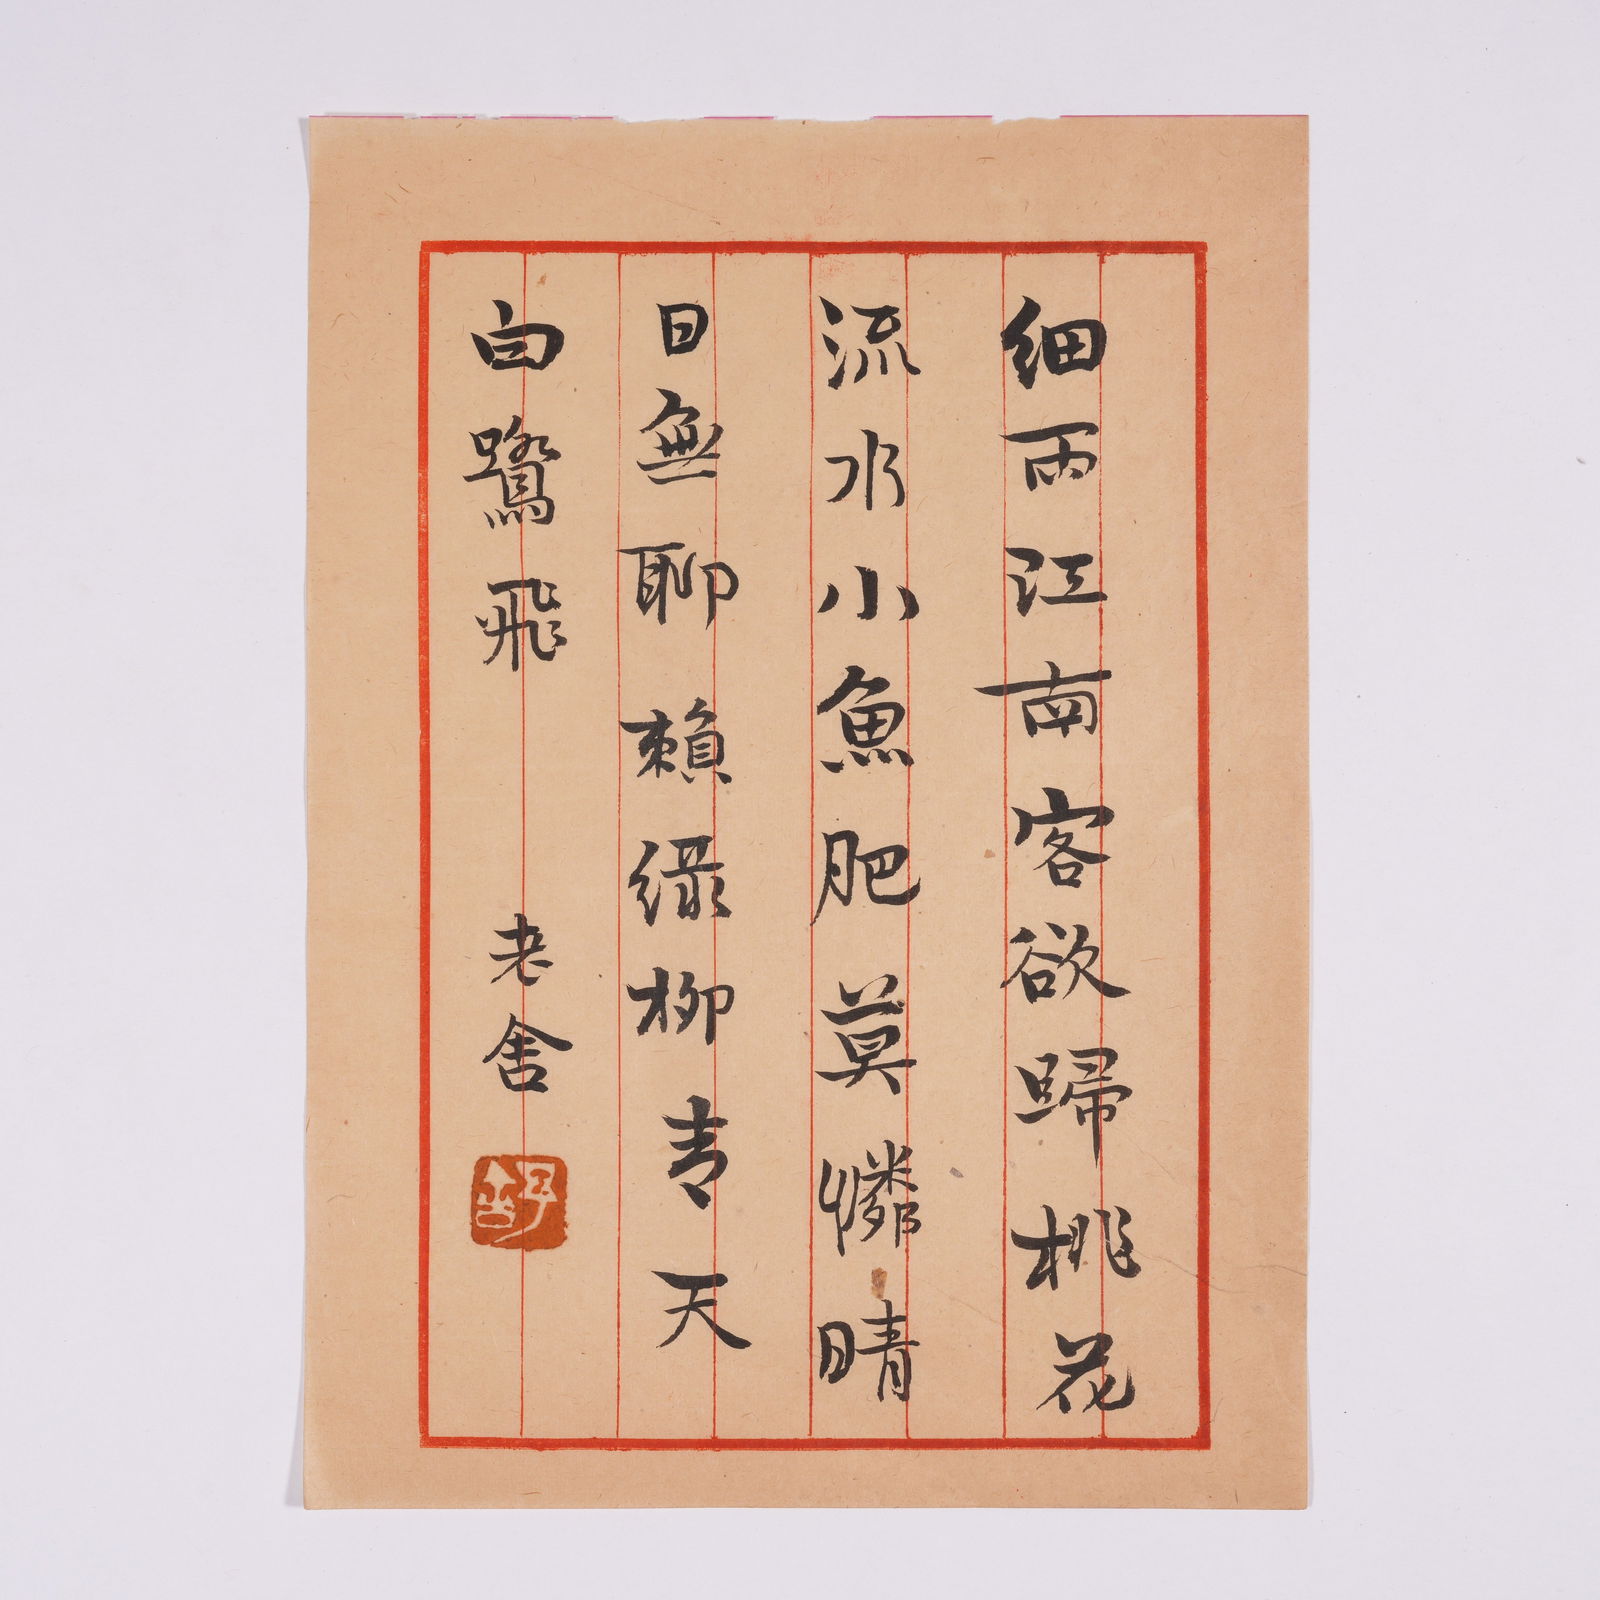 细雨江南客欲歸桃花
流水小魚肥莫憐晴
日無聊賴緑柳青天
白鷺飛
老舍
舍予